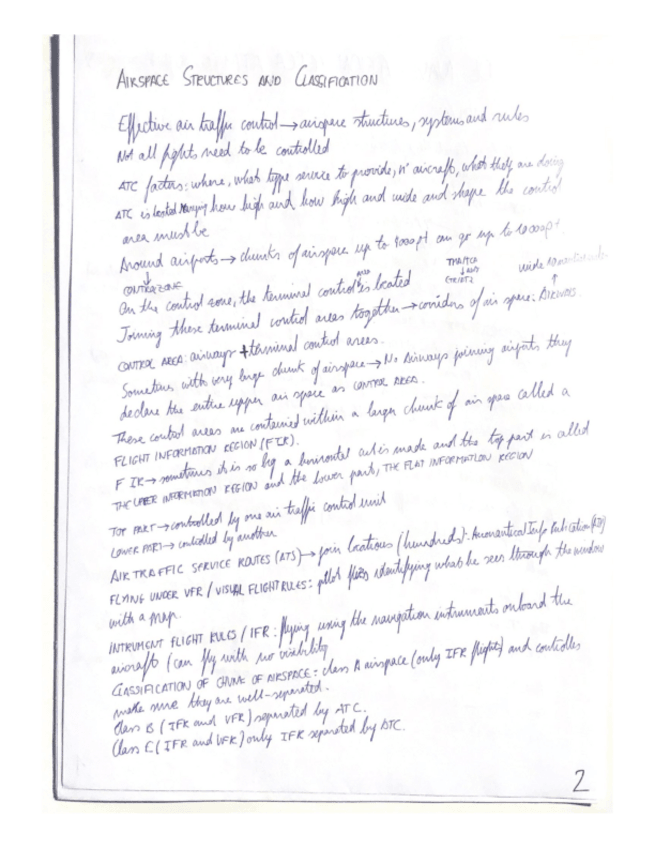 AIRSPACE STRUCTURES AND CLASSIFICATION
Effective air traffic control → airspace structures, systems and rules
Not all flights need to be controlled
ATC factors: where, what type service to provide, nº aircraft, what they are doing
ATC is located how high and how high and wide and shape the control
area must be
Around airports → chunks of airspace up to can go up to
↓
CONTROL ZONE
On the control zone, the terminal control area is located
Joining these terminal control areas together → corridors of air space: AIRWAYS
CONTROL AREA: airways + terminal control areas.
Sometimes with very large chunk of airspace → No Airways joining airports they
declare the entire upper air space as CONTROL AREA.
These control areas are contained within a larger chunk of air space called a
FLIGHT INFORMATION REGION (FIR).
FIR → sometimes it is so big a horizontal cut is made and the top part is called
THE UPPER INFORMATION REGION and the lower part, THE FLAT INFORMATION REGION
TOP PART → controlled by one air traffic control unit
LOWER PART → controlled by another
AIR TRAFFIC SERVICE ROUTES (ATS) → join locations (hundreds): Aeronautical Info Publication (AIP)
FLYING UNDER VFR / VISUAL FLIGHT RULES: pilot flies identifying what he sees through the window
with a map.
INTRUMENT FLIGHT RULES / IFR: flying using the navigation instruments onboard the
aircraft (can fly with no visibility
CLASSIFICATION OF CHUNK OF AIRSPACE: class A airspace (only IFR flights) and controlles
make sure they are well-separated.
Class B (IFR and VFR) separated by ATC.
Class C (IFR and VFR) only IFR separated by ATC.
2